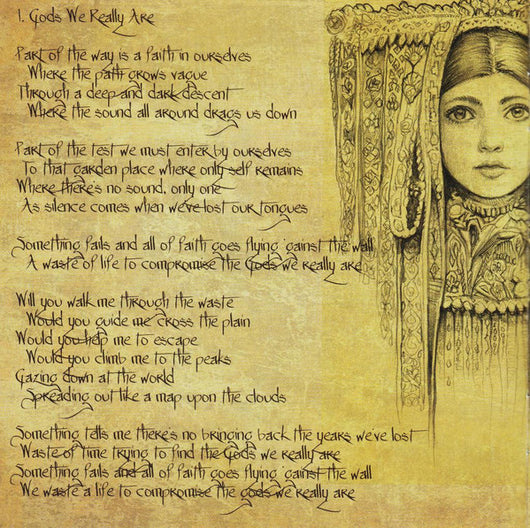 1. Gods We Really Are
Part of the way is a faith in ourselves
Where the path grows vague
Through a deep and dark descent
Where the sound all around drags us down
Part of the test we must enter by ourselves
To that garden place where only self remains
Where there's no sound, only one
As silence comes when we've lost our tongues
Something fails and all of faith goes flying 'gainst the wall
A waste of life to compromise the Gods we really are
Will you walk me through the waste
Would you guide me 'cross the plain
Would you help me to escape
Would you climb me to the peaks
Gazing down at the world
Spreading out like a map upon the clouds
Something tells me there's no bringing back the years we've lost
Waste of time trying to find the Gods we really are
Something fails and all of faith goes flying 'gainst the wall
We waste a life to compromise the gods we really are